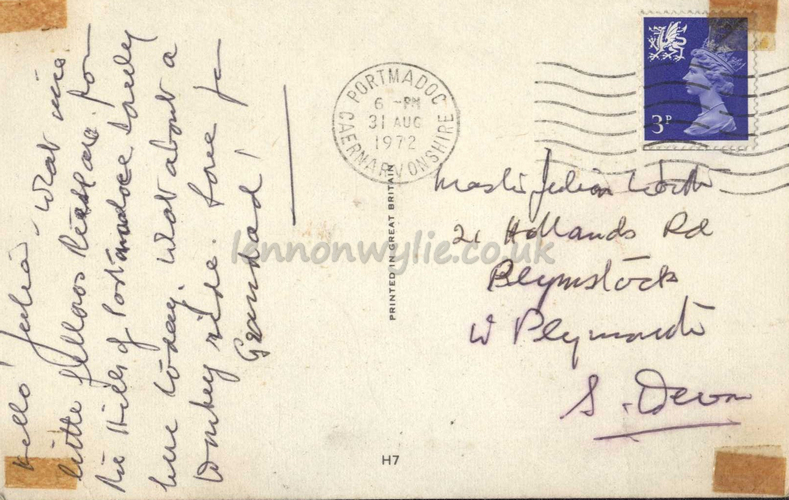 Hello! Julian - What nice
little fellows these are. from
the Hills of Portmadoc lovely
here today. What about a
Donkey ride. Love from
Grandad!
PORTMADOC
CAERNARVONSHIRE
6 - PM
31 AUG
1972
3P
Master Julian
21 Hollands Rd
Plymstock
W Plymouth
S. Devon
PRINTED IN GREAT BRITAIN
H7
lennonwylie.co.uk